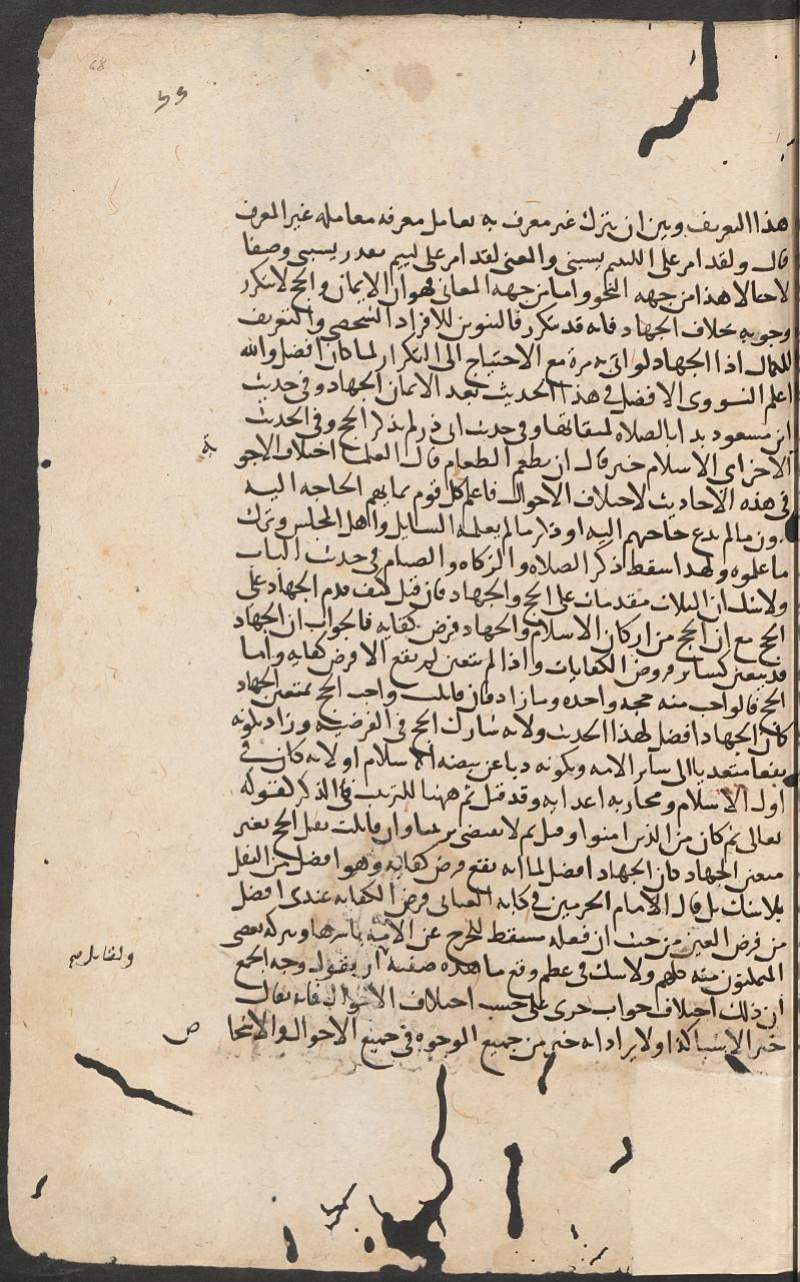 68
هذا التعريف وبين ان يترك غير معرف به تعامل معرفه معاملة غير المعرف
قال ولقد امر على اللئيم يسبني والمعنى لقد امر على لئيم يسبني وصفا
لا حالا هذا من جهة النحو واما من جهة المعاني فهو ان الايمان والحج لا يتكرر
وجوبه خلاف الجهاد فانه قد يتكرر فالتنوين للافراد الشخصي والتعريف
للكمال اذا الجهاد لو اتى به مرة مع الاحتياج الى التكرار لما كان افضل والله
اعلم النووى الافضل في هذا الحديث بعد الايمان الجهاد وفي حديث
ابن مسعود بدا بالصلاة لميقاتها وفي حديث ابي ذر لم يذكر الحج وفي الحديث
الاخر اي الاسلام خير قال ان يطعم الطعام قال العلماء اختلاف الاجو
بة
في هذه الاحاديث لاختلاف الاحوال فاعلم كل قوم بما بهم الحاجة اليه
دون ما لم تدع حاجتهم اليه او ذكر ما لم يعلمه السايل واهل المجلس وترك
ما علموه ولهذا سقط ذكر الصلاة والزكاة والصيام في حديث الباب
ولا شك ان الثلاث مقدمات على الحج والجهاد فان قيل كيف قدم الجهاد على
الحج مع ان الحج من اركان الاسلام والجهاد فرض كفاية فالجواب ان الجهاد
قد يتعين كسائر فروض الكفايات واذا لم يتعين لم يقع الا فرض كفاية واما
الحج فالواجب منه حجة واحدة وما زاد فان قابلت واجب الحج بمتعين الجهاد
كان الجهاد افضل لهذا الحديث ولانه شارك الحج في الفرضية وزاد بكونه
نفعا متعديا الى سائر الامة وبكونه ذبا عن بيضة الاسلام او لانه كان في
اول الاسلام ومحاربة اعدائه وقد قيل ثم ههنا للترتيب في الذكر لقوله
تعالى ثم كان من الذين امنوا وقيل ثم لا يقتضي ترتيبا وان قابلت نفل الحج بغير
متعين الجهاد كان الجهاد افضل لما انه يقع فرض كفاية وهو افضل من النفل
بلا شك بل قال الامام الحرمين في كتابه الغياثي فرض الكفاية عندي افضل
من فرض العين من حيث ان فعله مسقط للحرج عن الامة باسرها وبتركه يعصى
المتمكنون منه كلهم ولا شك في عظم وقع ما هذه صفته او يقول وجه الجمع
ان ذلك اختلاف جواب جرى على حسب اختلاف الاحوال فانه يقال
خير الاشياء كذا ولا يراد انه خير من جميع الوجوه في جميع الاحوال والاشخا
ص